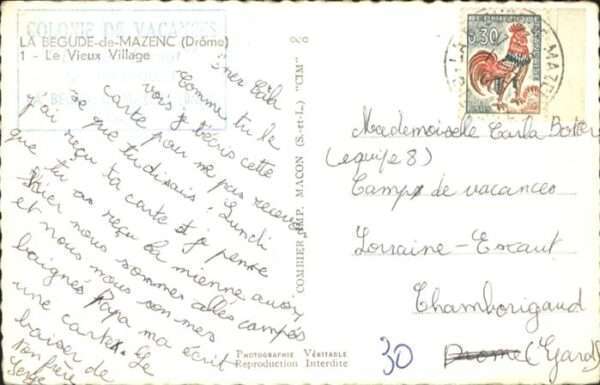 COLONIE DE VACANCES
LA BEGUDE-de-MAZENC (Drôme)
1 - Le Vieux Village
Comme tu le
vois j'écris cette
carte pour ne pas recevoir
ce que tu disais. Lundi
j'ai reçu ta carte et je pense
que tu as reçu la mienne aussi
Hier nous sommes allés campés
et nous nous sommes
baignés Papa m'a écrit
une carte. Je
baiser de
ton frère
Serge
COMBIER IMP. MACON (S.-et-L.) "CIM"
PHOTOGRAPHIE VÉRITABLE
Reproduction Interdite
0,30
Mademoiselle Carla
(equipe 8)
Camp de vacances
Lorraine-Escaut
Chamborigaud
30 Drome (Gard)